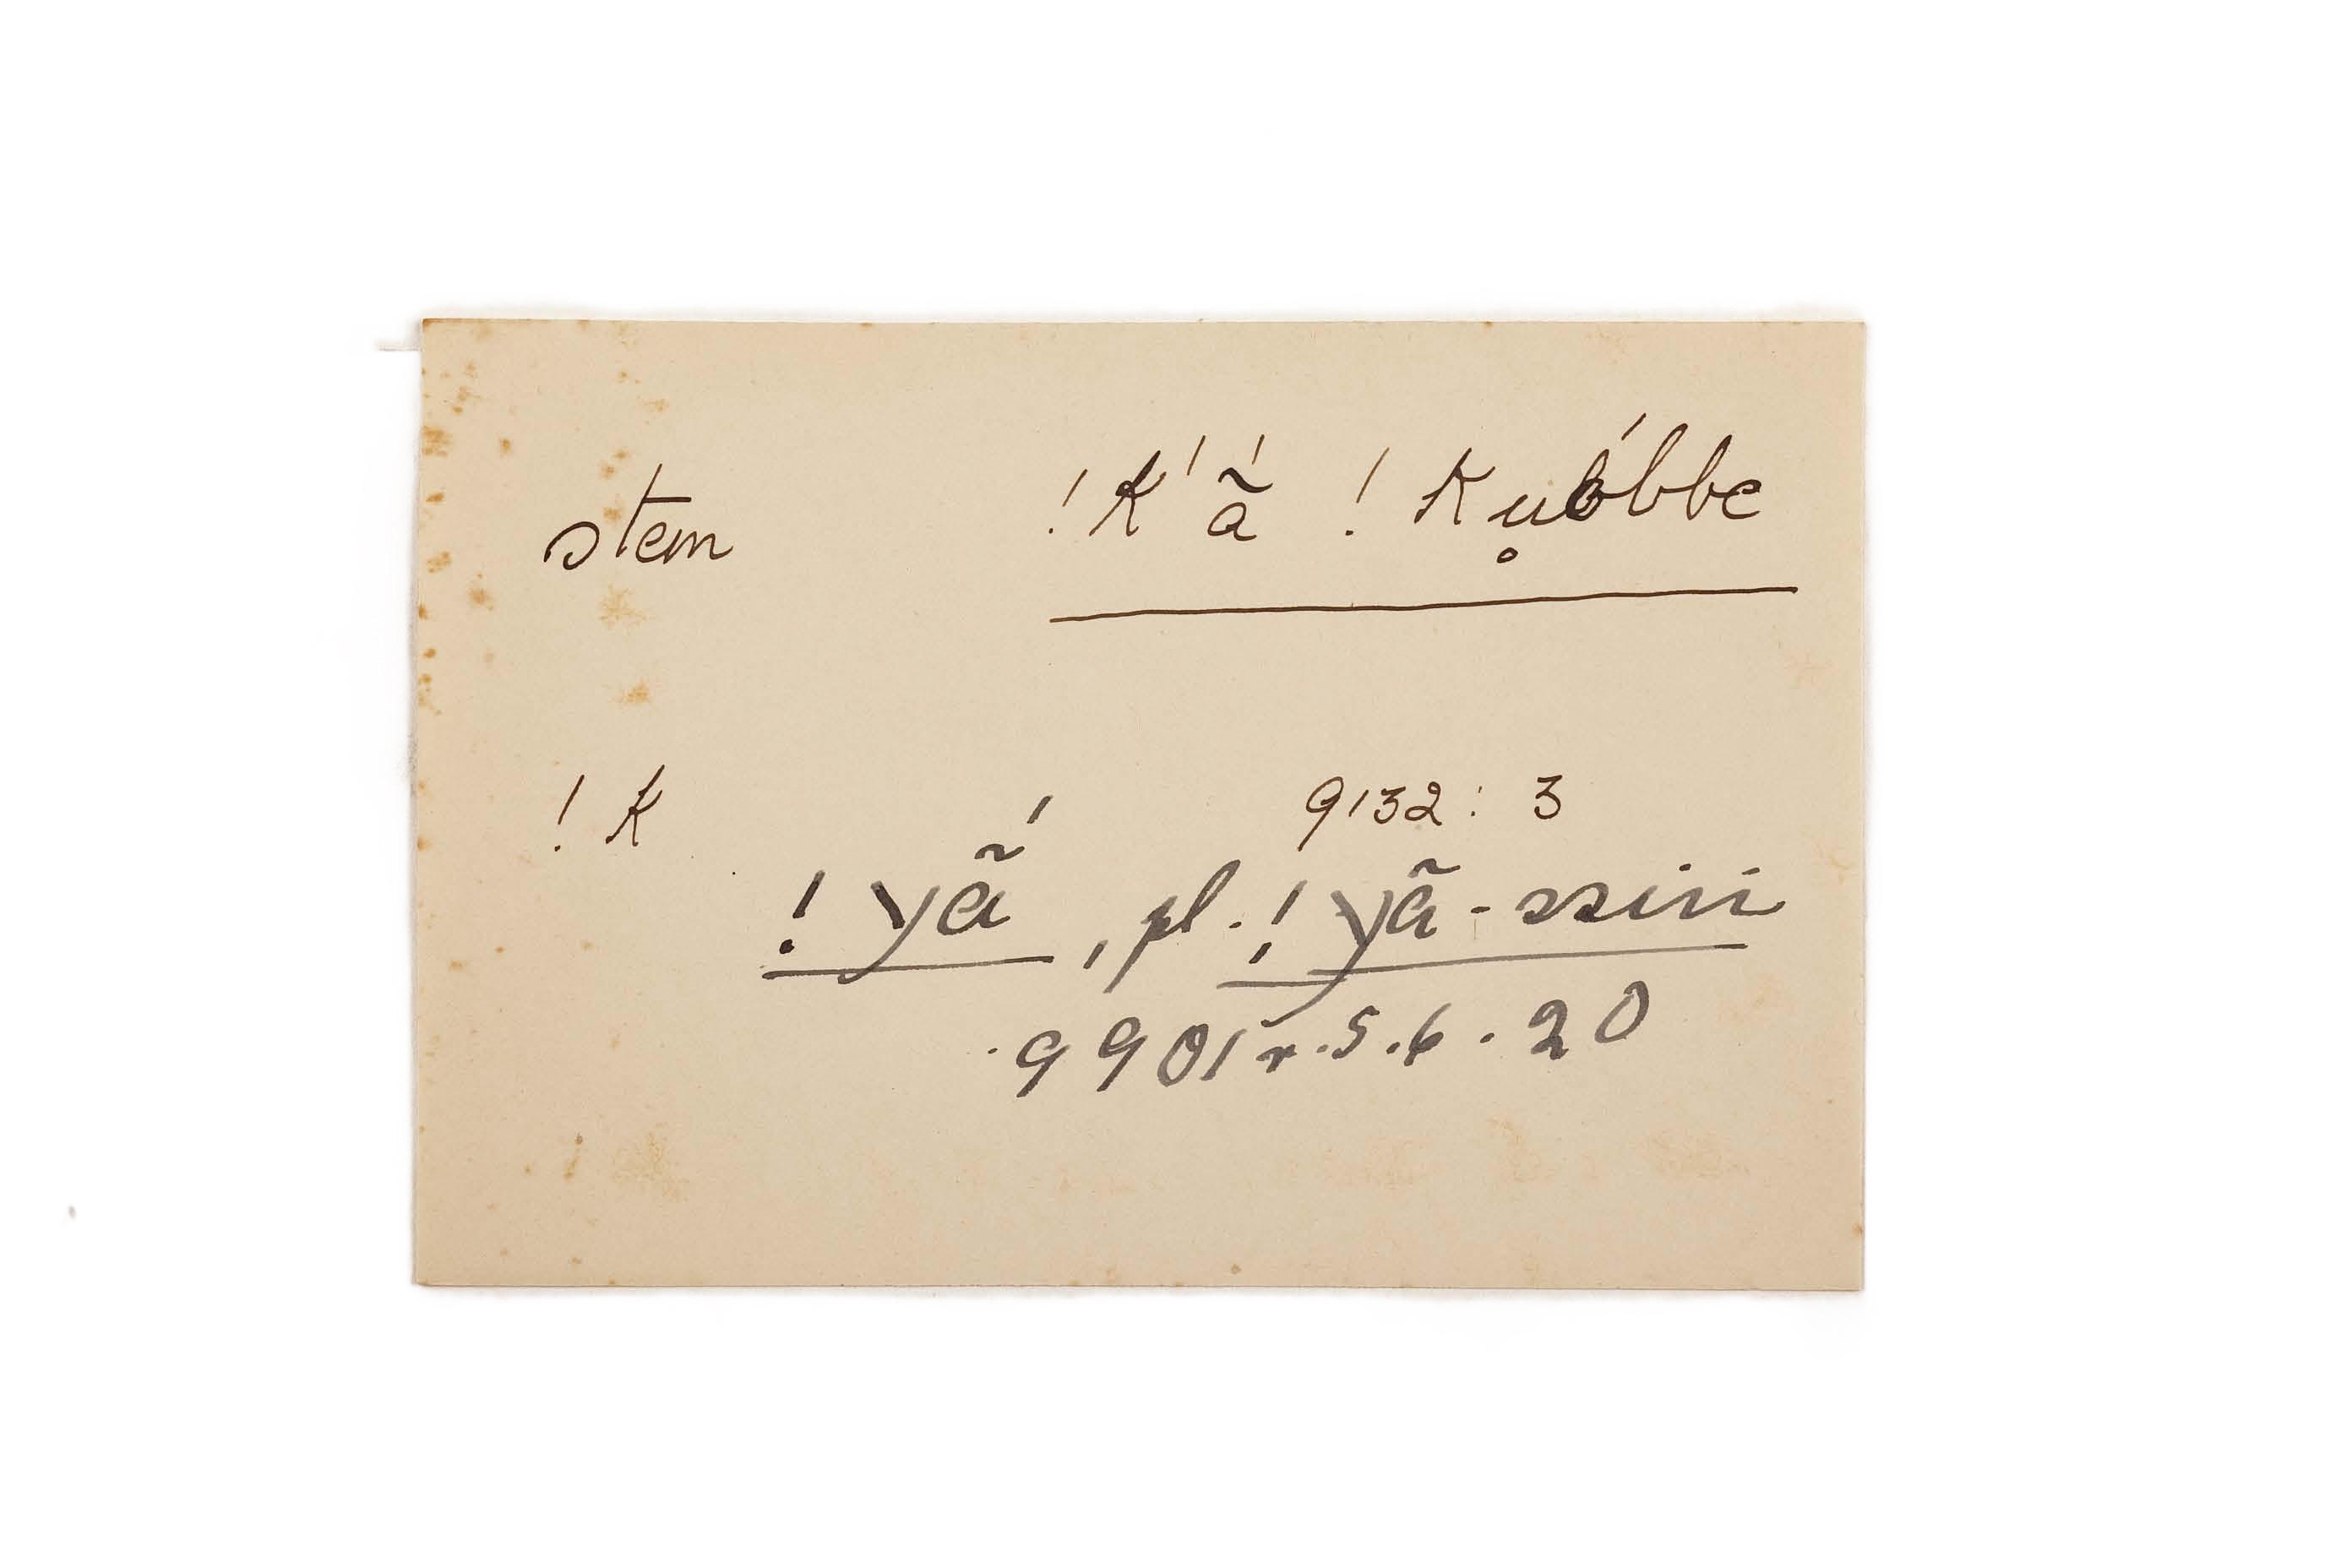 stem !k'ã́ !kụóbbe
!k 9132 : 3
!γã́, pl. !γã-ssiṅ
9901r.5.6.20